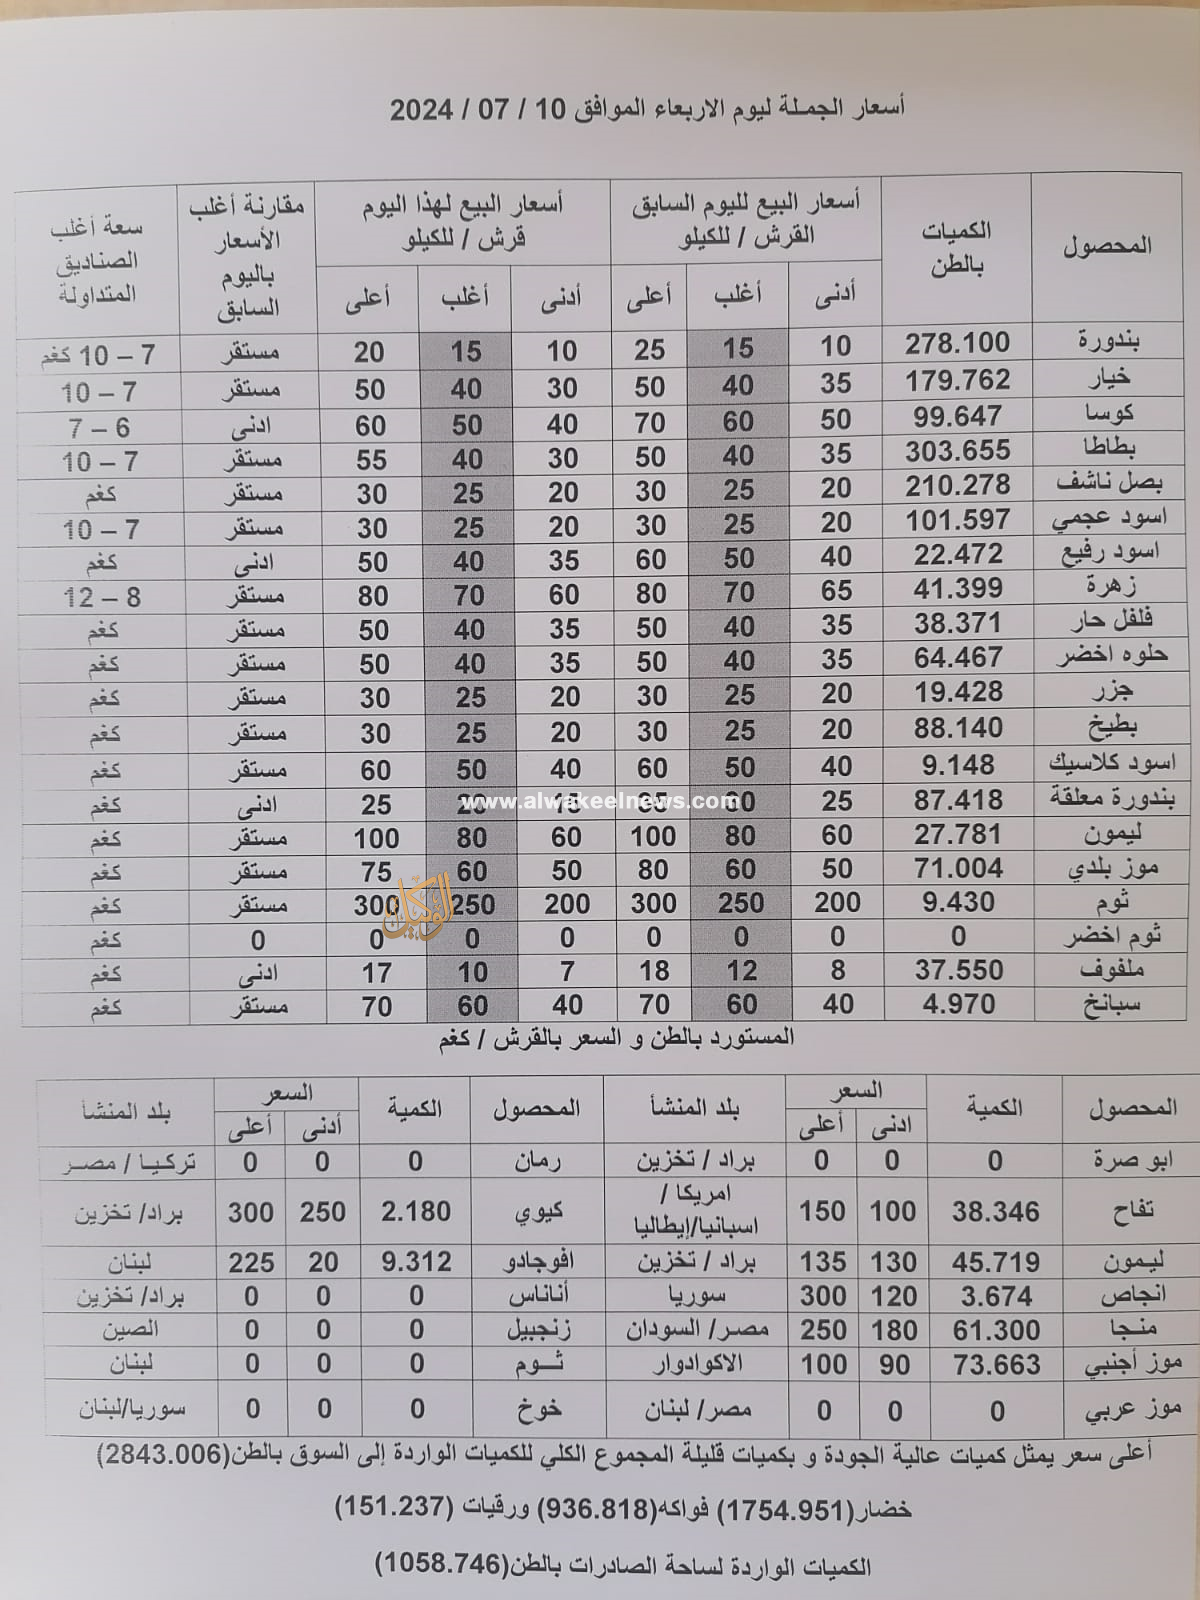 أسعار الجملة ليوم الاربعاء الموافق 10 / 07 / 2024
المحصول الكميات بالطن أسعار البيع لليوم السابق القرش / للكيلو أسعار البيع لهذا اليوم قرش / للكيلو مقارنة أغلب الأسعار باليوم السابق سعة أغلب الصناديق المتداولة
أدنى أغلب أعلى أدنى أغلب أعلى
بندورة 278.100 10 15 25 10 15 20 مستقر 7 – 10 كغم
خيار 179.762 35 40 50 30 40 50 مستقر 7 – 10
كوسا 99.647 50 60 70 40 50 60 ادنى 6 – 7
بطاطا 303.655 35 40 50 30 40 55 مستقر 7 – 10
بصل ناشف 210.278 20 25 30 20 25 30 مستقر كغم
اسود عجمي 101.597 20 25 30 20 25 30 مستقر 7 – 10
اسود رفيع 22.472 40 50 60 35 40 50 ادنى كغم
زهرة 41.399 65 70 80 60 70 80 مستقر 8 – 12
فلفل حار 38.371 35 40 50 35 40 50 مستقر كغم
حلوه اخضر 64.467 35 40 50 35 40 50 مستقر كغم
جزر 19.428 20 25 30 20 25 30 مستقر كغم
بطيخ 88.140 20 25 30 20 25 30 مستقر كغم
اسود كلاسيك 9.148 40 50 60 40 50 60 مستقر كغم
بندورة معلقة 87.418 25 60 25 ادنى كغم
www.alwakeelnews.com
ليمون 27.781 60 80 100 60 80 100 مستقر كغم
موز بلدي 71.004 50 60 80 50 60 75 مستقر كغم
ثوم 9.430 200 250 300 200 250 300 مستقر كغم
الوكيل
ثوم اخضر 0 0 0 0 0 0 0 0 كغم
ملفوف 37.550 8 12 18 7 10 17 ادنى كغم
سبانخ 4.970 40 60 70 40 60 70 مستقر كغم
المستورد بالطن و السعر بالقرش / كغم
المحصول الكمية السعر بلد المنشأ المحصول الكمية السعر بلد المنشأ
ادنى أعلى أدنى أعلى
ابو صرة 0 0 0 براد / تخزين رمان 0 0 0 تركيا / مصر
تفاح 38.346 100 150 امريكا / اسبانيا/إيطاليا كيوي 2.180 250 300 براد/ تخزين
ليمون 45.719 130 135 براد / تخزين افوجادو 9.312 20 225 لبنان
انجاص 3.674 120 300 سوريا أناناس 0 0 0 براد/ تخزين
منجا 61.300 180 250 مصر/ السودان زنجبيل 0 0 0 الصين
موز أجنبي 73.663 90 100 الاكوادوار ثوم 0 0 0 لبنان
موز عربي 0 0 0 مصر/ لبنان خوخ 0 0 0 سوريا/لبنان
أعلى سعر يمثل كميات عالية الجودة و بكميات قليلة المجموع الكلي للكميات الواردة إلى السوق بالطن(2843.006)
خضار(1754.951) فواكه(936.818) ورقيات (151.237)
الكميات الواردة لساحة الصادرات بالطن(1058.746)